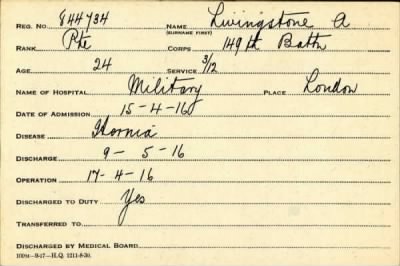 REG. NO. 844734 NAME Livingstone A
(SURNAME FIRST)
RANK Pte CORPS 149th Battn
AGE 24 SERVICE 3/12
NAME OF HOSPITAL Military PLACE London
DATE OF ADMISSION 15-4-16
DISEASE Hernia
DISCHARGE 9-5-16
OPERATION 17-4-16
DISCHARGED TO DUTY Yes
TRANSFERRED TO
DISCHARGED BY MEDICAL BOARD
100M-9-17-H.Q. 1211-8-30.